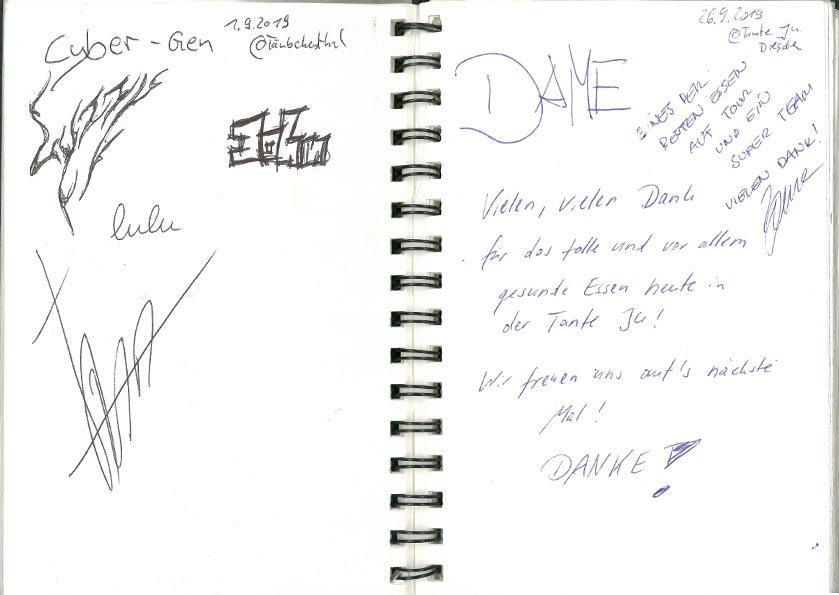 Cyber-Gen
1.9.2019
@Täubchenthal
lulu
26.9.2019
@Tante Ju
Dresden
DAME
EINES DER
BESTEN ESSEN
AUF TOUR
UND EIN
SUPER TEAM
VIELEN DANK!
Vielen, vielen Dank
für das tolle und vor allem
gesunde Essen heute in
der Tante Ju!
Wir freuen uns auf's nächste
Mal!
DANKE!